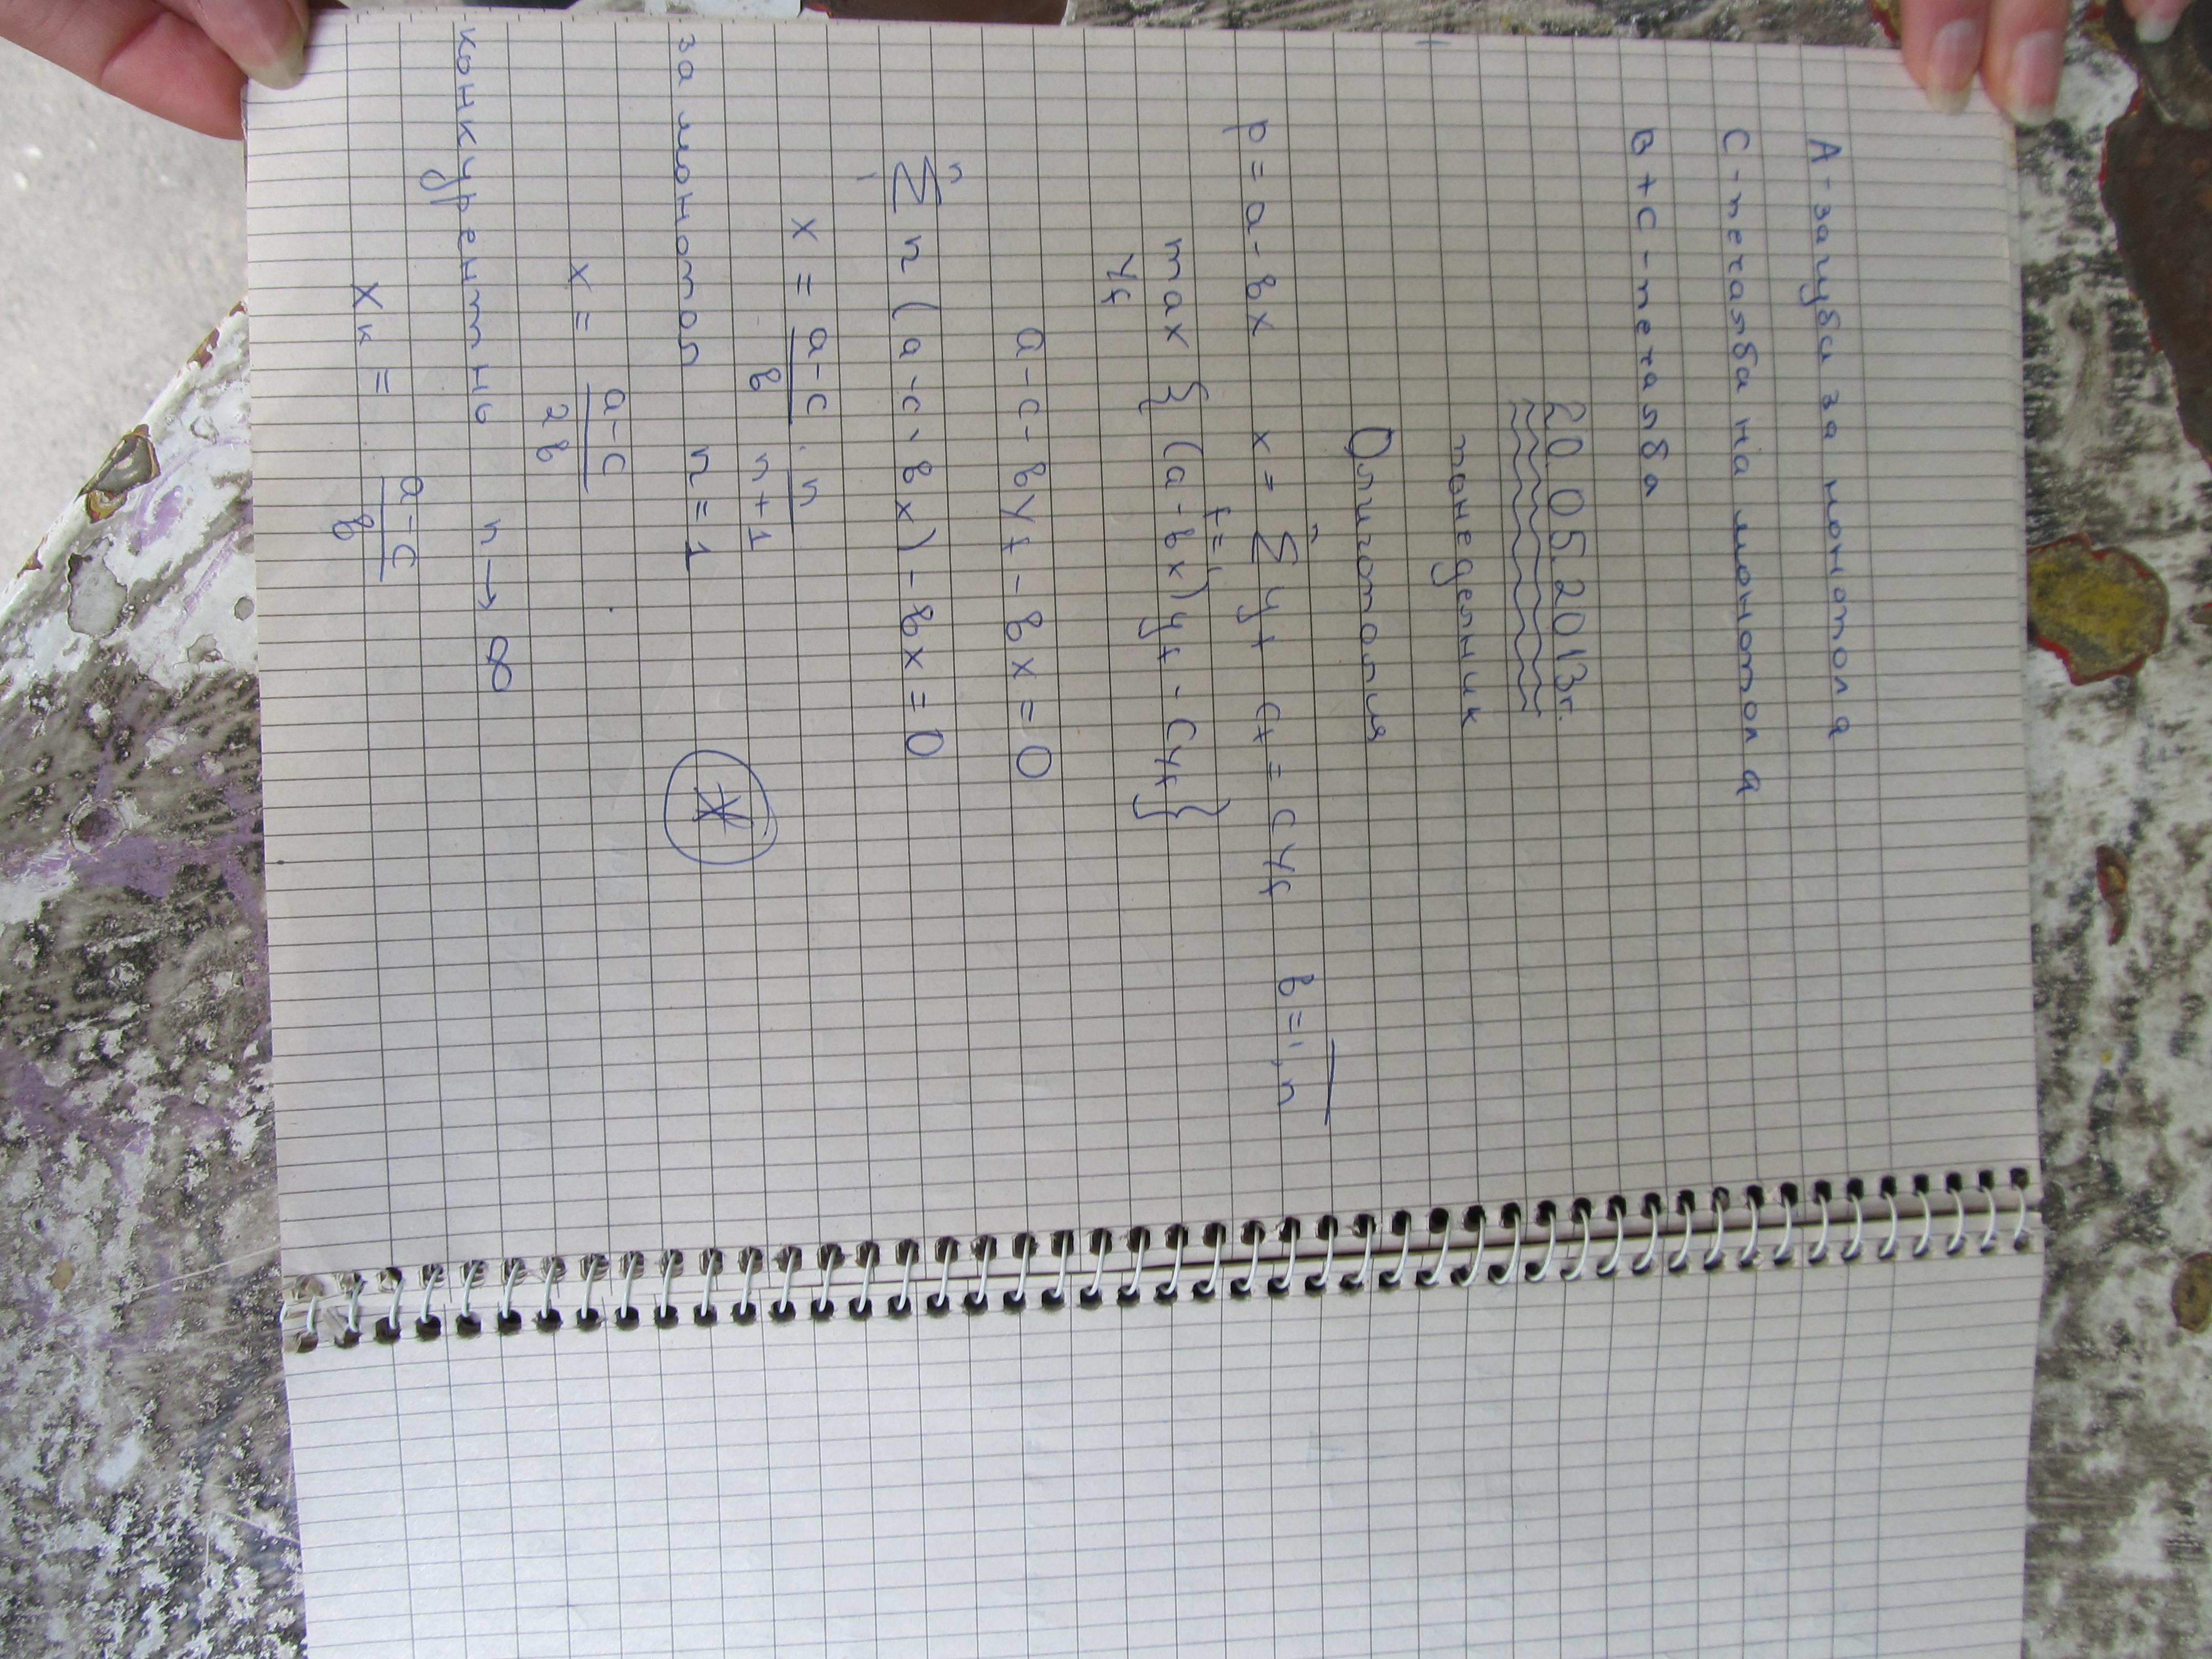 A - загуба за монопола
C - печалба на монопола
B + C - печалба
20.05.2013г.
понеделник
Олигополия
p = a - bx x = n Σ f=1 yf cf = cyf b = 1,n
max yf {(a - bx)yf - cyf}
a - c - byf - bx = 0
n Σ 1 n(a - c - bx) - bx = 0
x = a-c/b . n/n+1
за монопол n = 1
x = a-c/2b
*
конкурентно n → ∞
xк = a-c/b